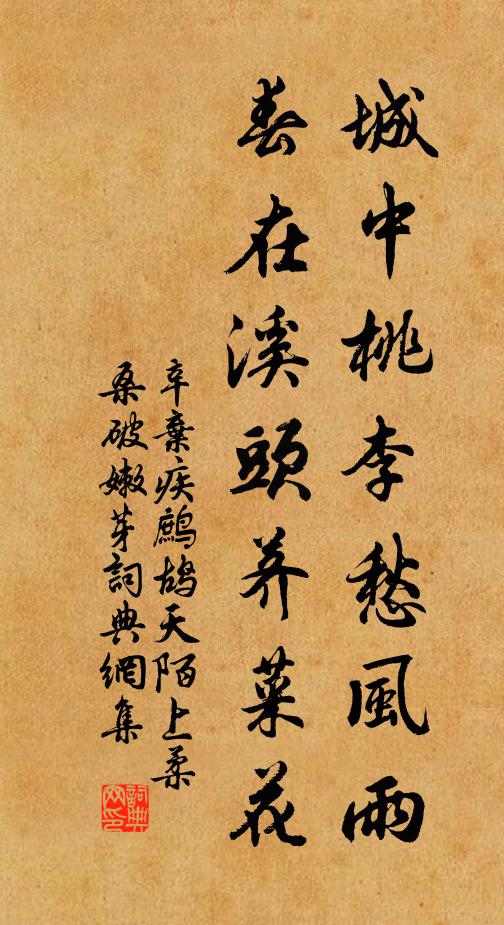 城中桃李愁風雨
春在溪頭荠菜花
辛棄疾鷓鴣天陌上柔
桑破嫩芽詞典網集
詞典
网印